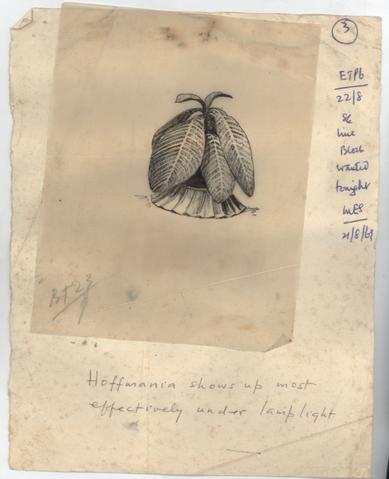 3
ETPb
22/8
Sc
line
Block
wanted
tonight
WES
21/8/69
Hoffmania shows up most
effectively under lamplight